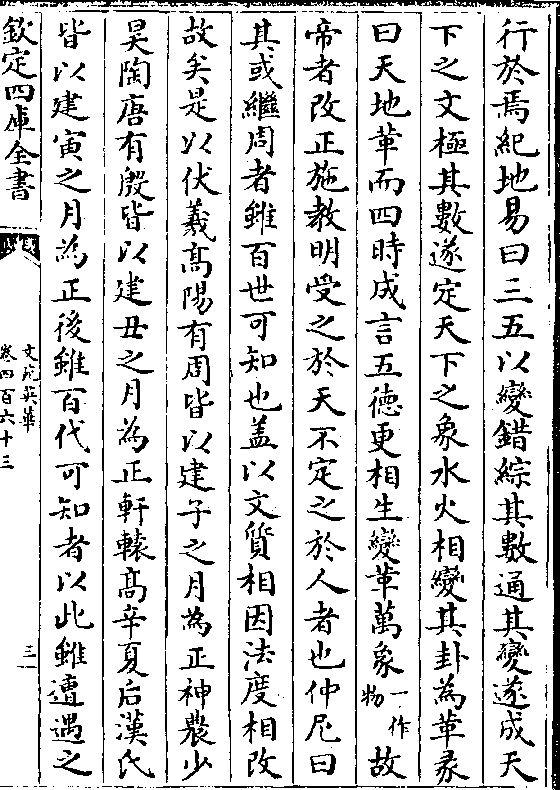 行於焉紀地易曰三五以變錯綜其數通其變遂成天
下之文極其數遂定天下之象水火相變其卦為革彖
曰天地革而四時成言五德更相生變革萬象一作物故
帝者改正施教明受之於天不定之於人者也仲尼曰
其或繼周者雖百世可知也蓋以文質相因法度相改
故矣是以伏羲高陽有周皆以建子之月為正神農少
昊陶唐有殷皆以建丑之月為正軒轅高辛夏后漢氏
皆以建寅之月為正後雖百代可知者以此雖遭遇之
欽定四庫全書
文苑英華
卷四百六十三
三